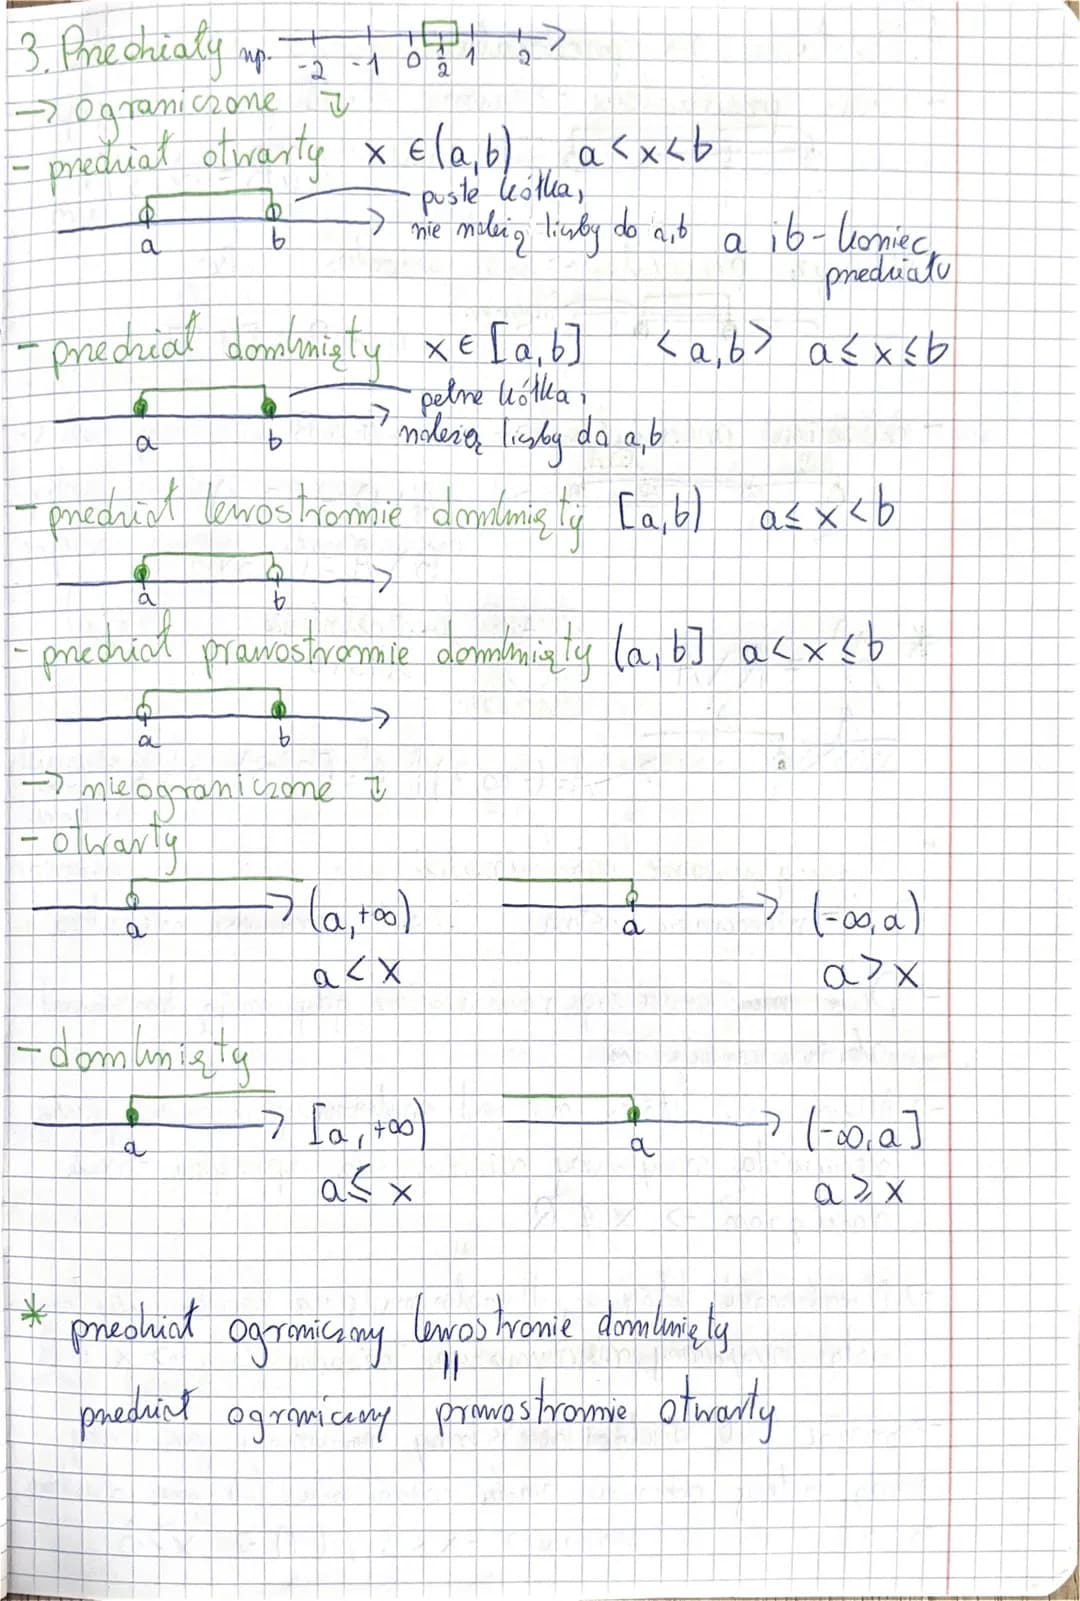 3. Przedziały np. -2 -1 0 1/2 1 2
→ ograniczone
- przedział otwarty x ∈ (a,b) a<x<b
puste kółka,
a b nie należą liczby do a,b a i b - koniec
przedziału
- przedział domknięty x ∈ [a,b] <a,b> a ≤ x ≤ b
pełne kółka,
a b należą liczby do a,b
- przedział lewostronnie domknięty [a,b) a ≤ x < b
a b
- przedział prawostronnie domknięty (a,b] a < x ≤ b
a b
→ nieograniczone
- otwarty
a (a,+∞) a (-∞,a)
a < x a > x
- domknięty
a [a,+∞) a (-∞,a]
a ≤ x a ≥ x
* przedział ograniczony lewostronie domknięty
||
przedział ograniczony prawostronnie otwarty